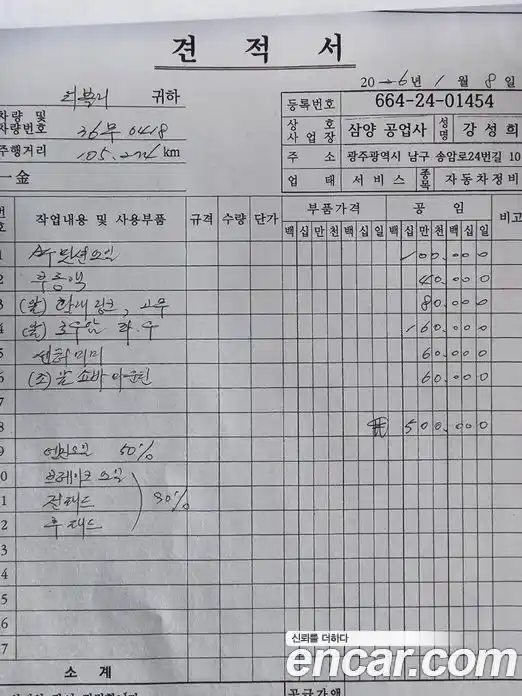 견 적 서
20 26년 1 월 8 일
귀하
등록번호 664-24-01454
차량 및
차량번호 36무 0418
상 호
사업장 삼양 공업사 성명 강 성 희
주행거리 105,274 km
주 소 광주광역시 남구 송암로24번길 10
一金
업 태 서 비 스 종목 자동차정비
번호 작업내용 및 사용부품 규격 수량 단가 부품가격 공 임 비고
백 십 만 천 백 십 일 백 십 만 천 백 십 일
1 100.000
2 부동액 40.000
3 (앞) 활대링크, 고무 80.000
4 (앞) 로우암 좌.우 160.000
5 미미 60.000
6 (조) 앞 쇼바 마운틴 60.000
7
8 ₩ 500.000
9 엔진오일 50%
0 브레이크오일
1 전패드 30%
2 후패드
3
4
5
6
7
소 계
신뢰를 더하다
encar.com
공급가액